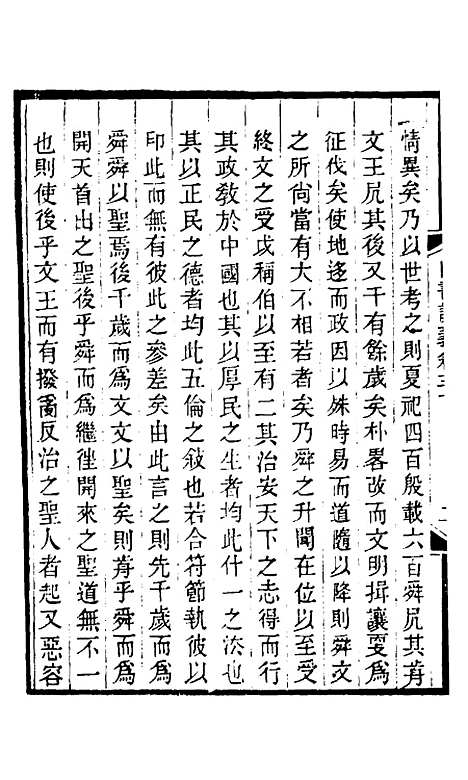 情異矣乃以世考之則夏祀四百殷載六百舜凥其歬
文王凥其後又千有餘歲矣朴畧改而文明揖讓變爲
征伐矣使地迻而政因以殊時易而道隨以降則舜文
之所尚當有大不相若者矣乃舜之升聞在位以至受
終文之受戉稱伯以至有二其治安天下之志得而行
其政敎於中國也其以厚民之生者均此什一之灋也
其以正民之德者均此五倫之敍也若合符節執彼以
印此而無有彼此之參差矣由此言之則先千歲而爲
舜舜以聖焉後千歲而爲文文以聖矣則歬乎舜而爲
開天首出之聖後乎舜而爲繼徃開來之聖道無不一
也則使後乎文王而有撥亂反治之聖人者起又惡容
四書訓義卷三十